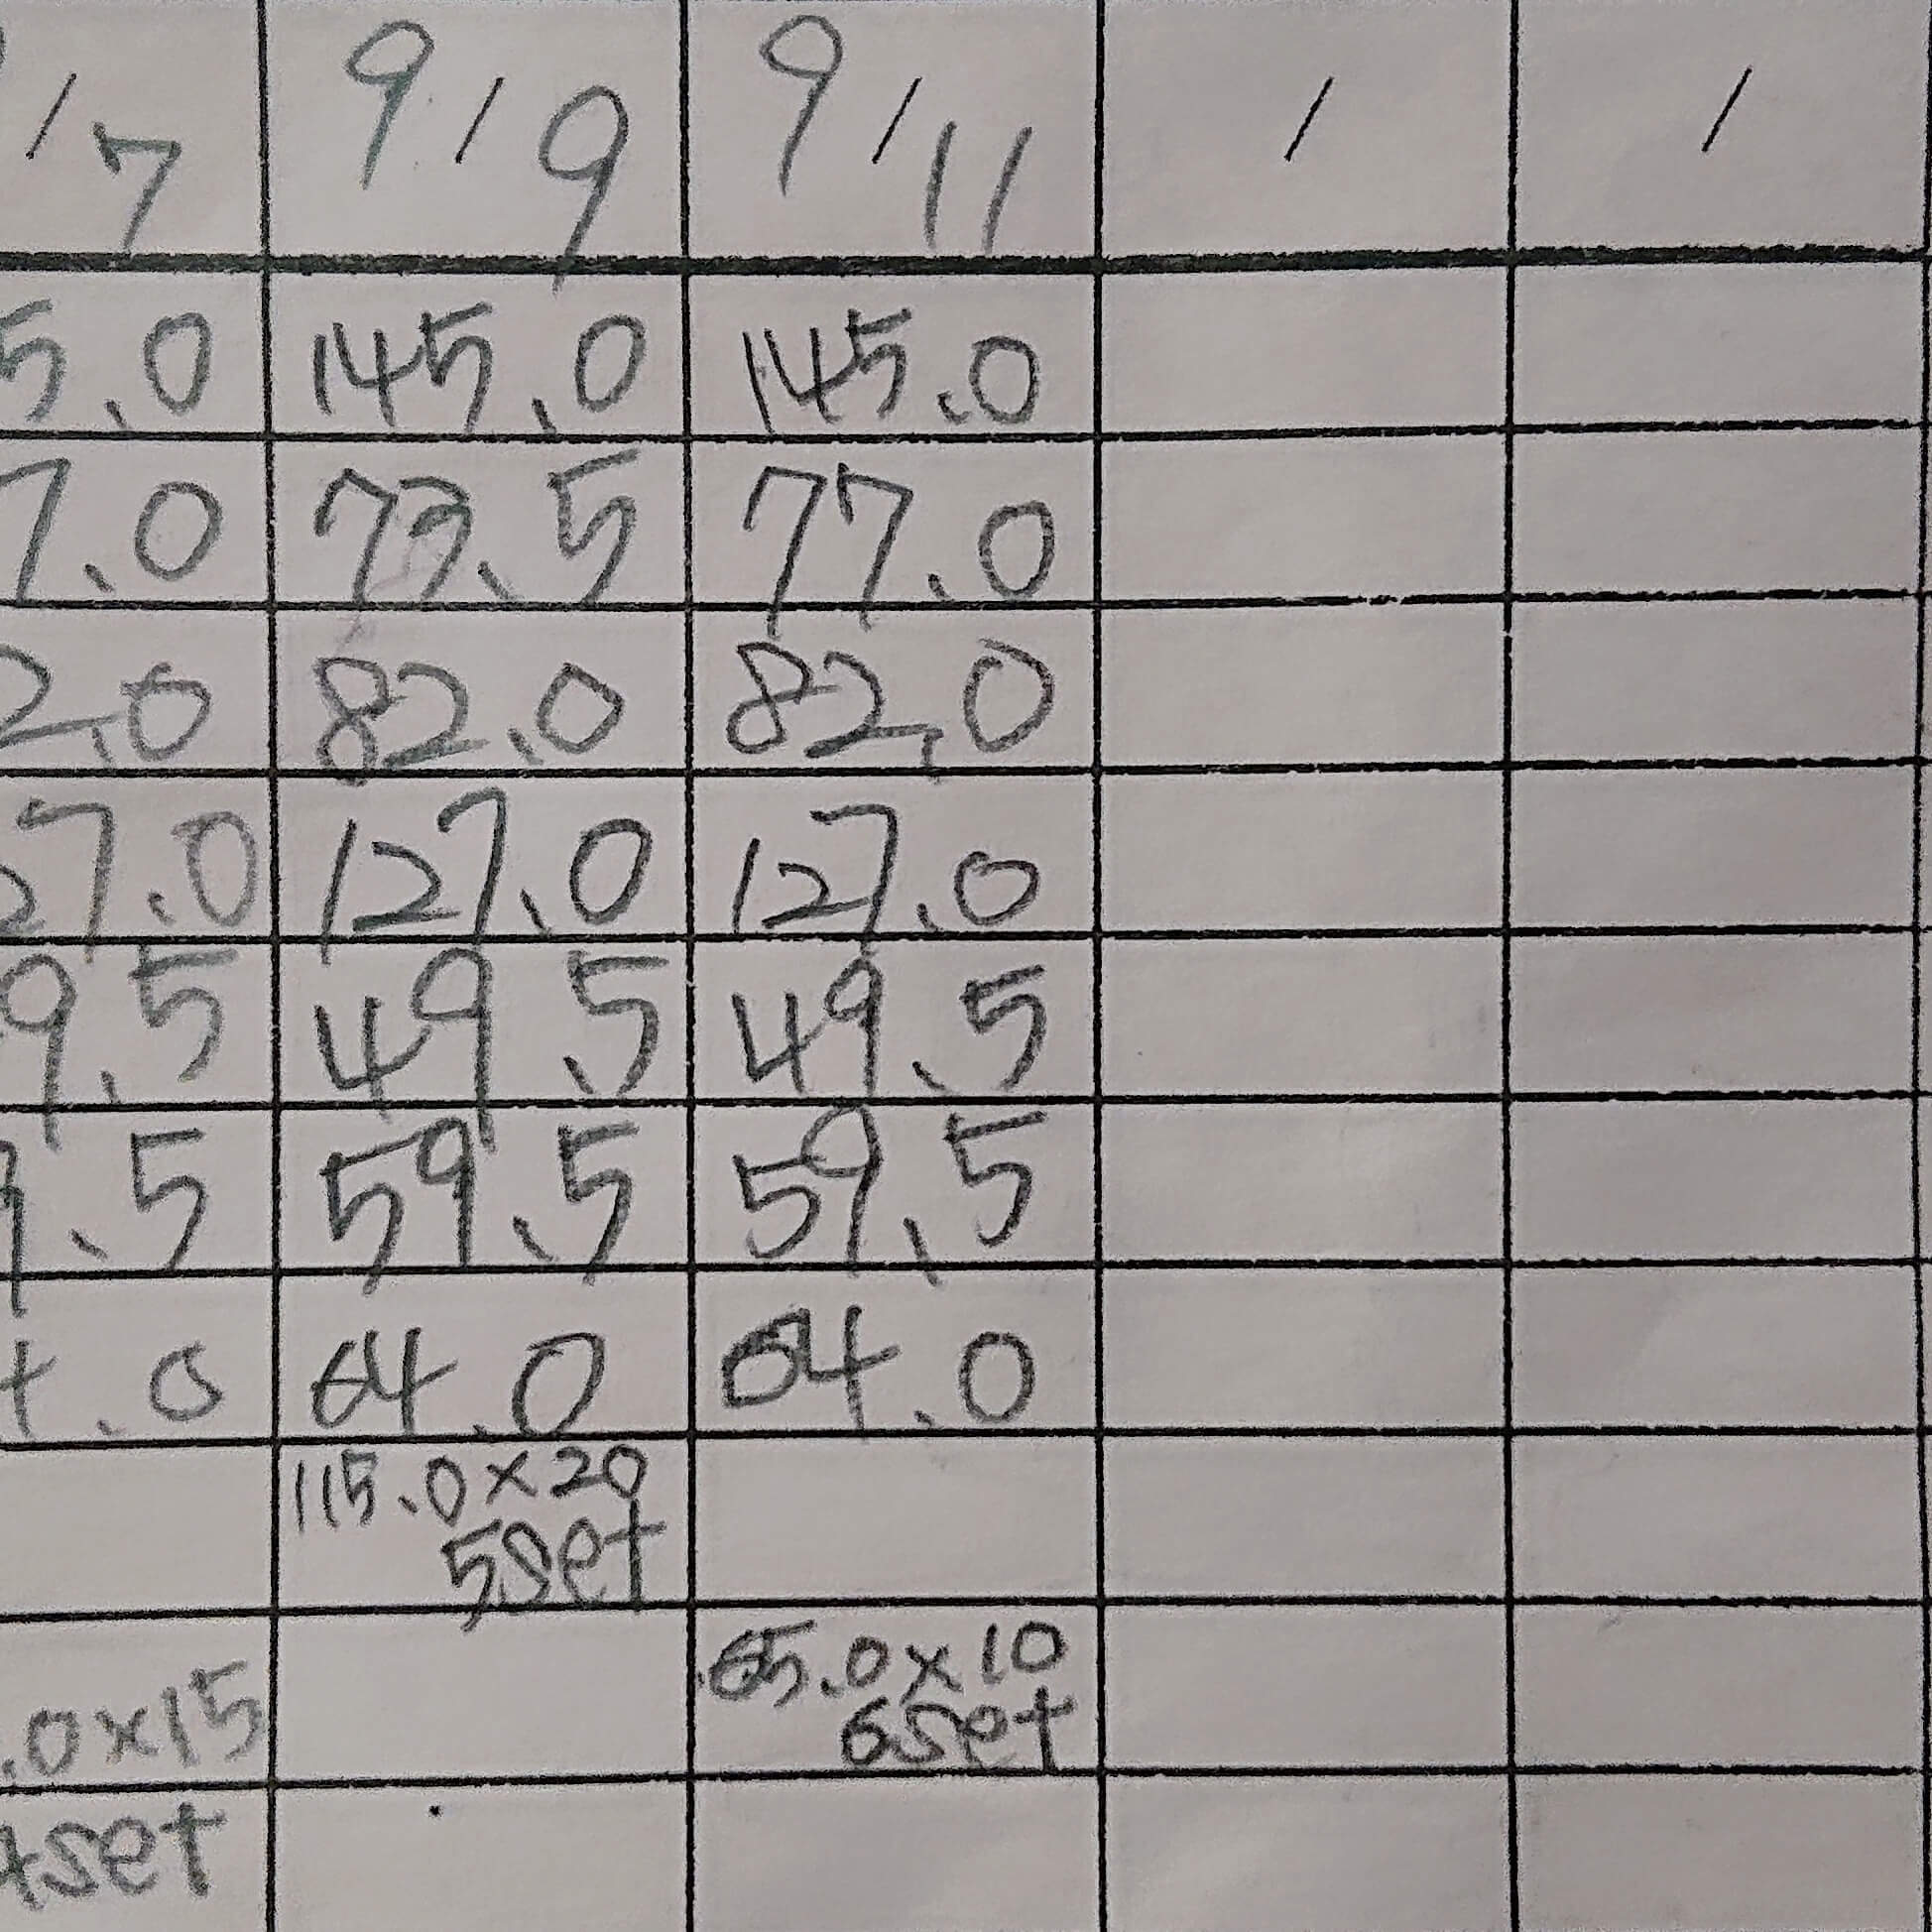 /7 9/9 9/11 / /
5.0 145.0 145.0
7.0 73.5 77.0
2.0 82.0 82.0
27.0 127.0 127.0
9.5 49.5 49.5
9.5 59.5 59.5
4.0 64.0 64.0
115.0×20
5set
65.0×10
6set
.0×15
4set